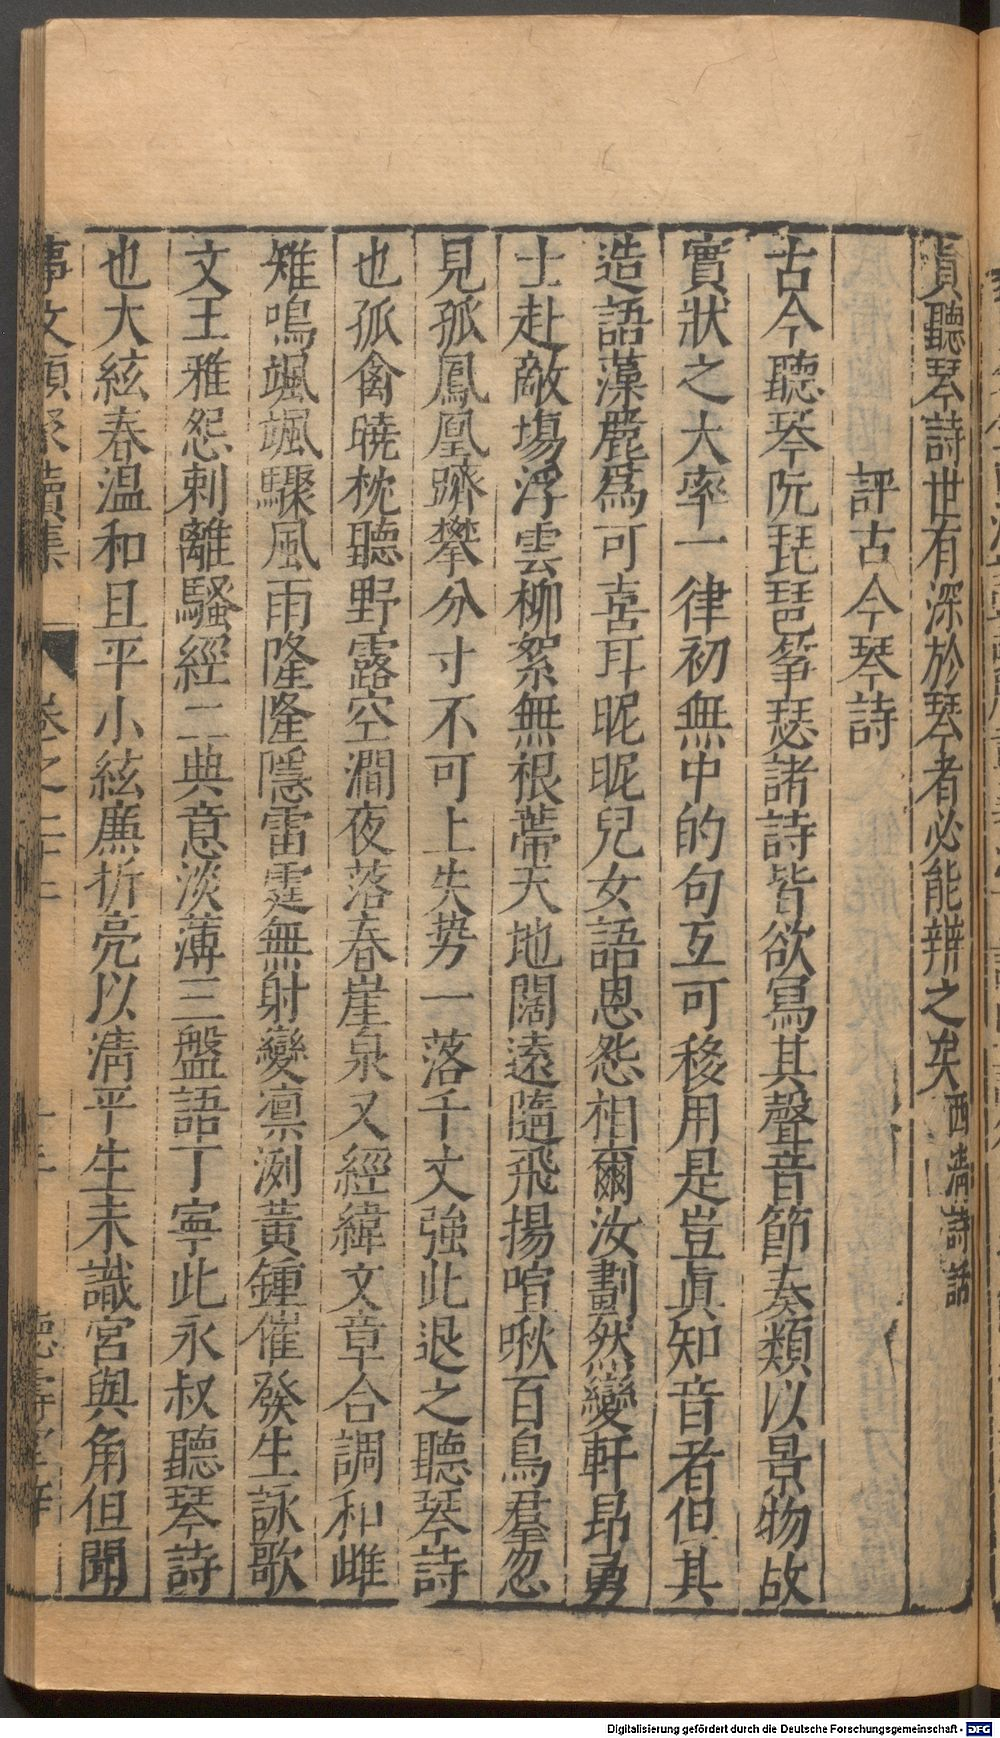 貢聽琴詩世有深於琴者必能辨之矣西清詩話
評古今琴詩
古今聽琴阮琵琶箏瑟諸詩皆欲寫其聲音節奏類以景物故
實狀之大率一律初無中的句互可移用是豈眞知音者但其
造語藻麗爲可喜耳昵昵兒女語恩怨相爾汝劃然變軒昂勇
士赴敵場浮雲柳絮無根蔕天地闊遠隨飛揚喧啾百鳥羣忽
見孤鳳凰躋攀分寸不可上失势一落千文強此退之聽琴詩
也孤禽曉枕聽野露空澗夜落春崖泉又經緯文章合調和雌
雉鳴颯颯驟風雨隆隆隱雷霆無射變凛冽黃鍾催發生詠歌
文王雅怨刺離騷經二典意淡薄三盤語丁寧此永叔聽琴詩
也大絃春温和且平小絃廉折亮以清平生未識宮與角但聞
事文類聚續集 卷之二十二
Digitalisierung gefördert durch die Deutsche Forschungsgemeinschaft - DFG